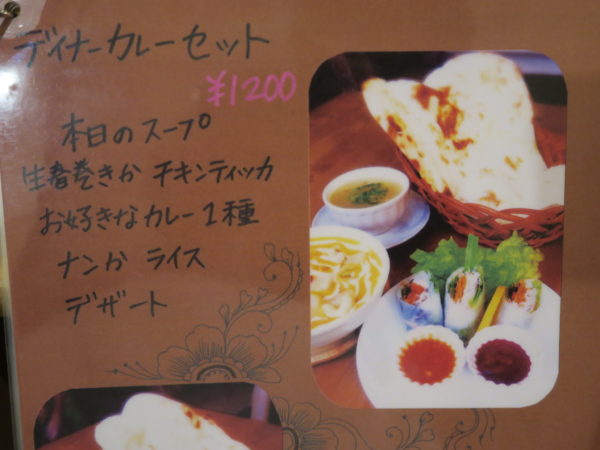 ディナーカレーセット
¥1200
本日のスープ
生春巻きか チキンティッカ
お好きなカレー1種
ナンか ライス
デザート